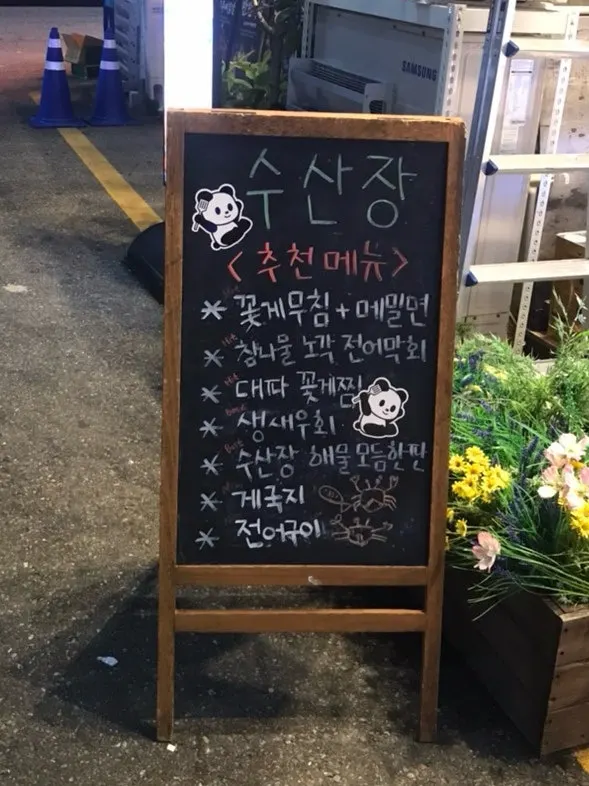 SAMSUNG
수산장
<추천메뉴>
* 꽃게무침+메밀면
* 참나물 노각 전어막회
* 대파 꽃게찜
* 생새우회
* 수산장 해물모듬한판
* 게국지
* 전어구이